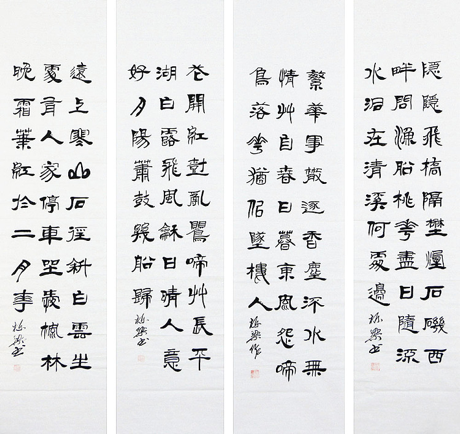 隱隱飛橋隔壄煙石磯西
畔問漁船桃花盡日隨流
水洞在清溪何處邊
繁華事散逐香塵流水無
情艸自春日暮東風怨啼
鳥落花猶似墜樓人
花開紅樹亂鶯啼艸長平
湖白鷺飛風龢日晴人意
好夕陽簫鼓幾船歸
遠上寒山石徑斜白雲生
處有人家停車坐愛楓林
晚霜葉紅於二月花